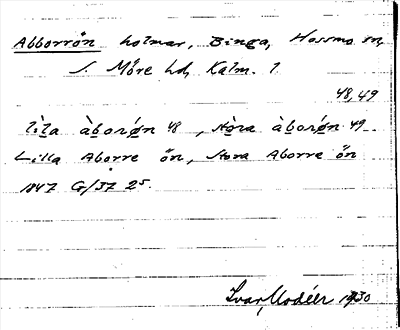 Abborrön holmar, Binga, Hossmo sn,
S. Möre hd, Kalm. l
48, 49
lìla àborǿn 48, stòra àborǿn 49
Lilla Aborre ön, Stora Aborre ön
1847 G/37 25.
Ivar Modéer 1930